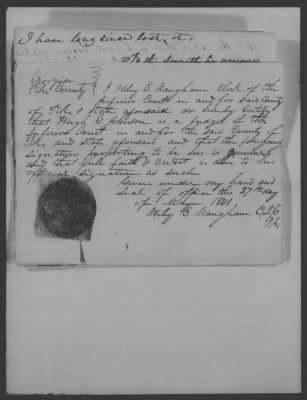 I have long since lost it.
Georgia
Pike County I Wiley E. Mangham Clerk of the
Inferior Court in and for said County
of Pike & State aforesaid do hereby certify
that Hugh G. Johnson is a Judge of the
Inferior Court in and for the said County of
Pike and State aforesaid and that the foregoing
signature purporting to be his is genuine
and that full faith & credit is due to his
official signature as such
Given under my hand and
seal of office this 27th day
of May 1841
Wiley E. Mangham Clk